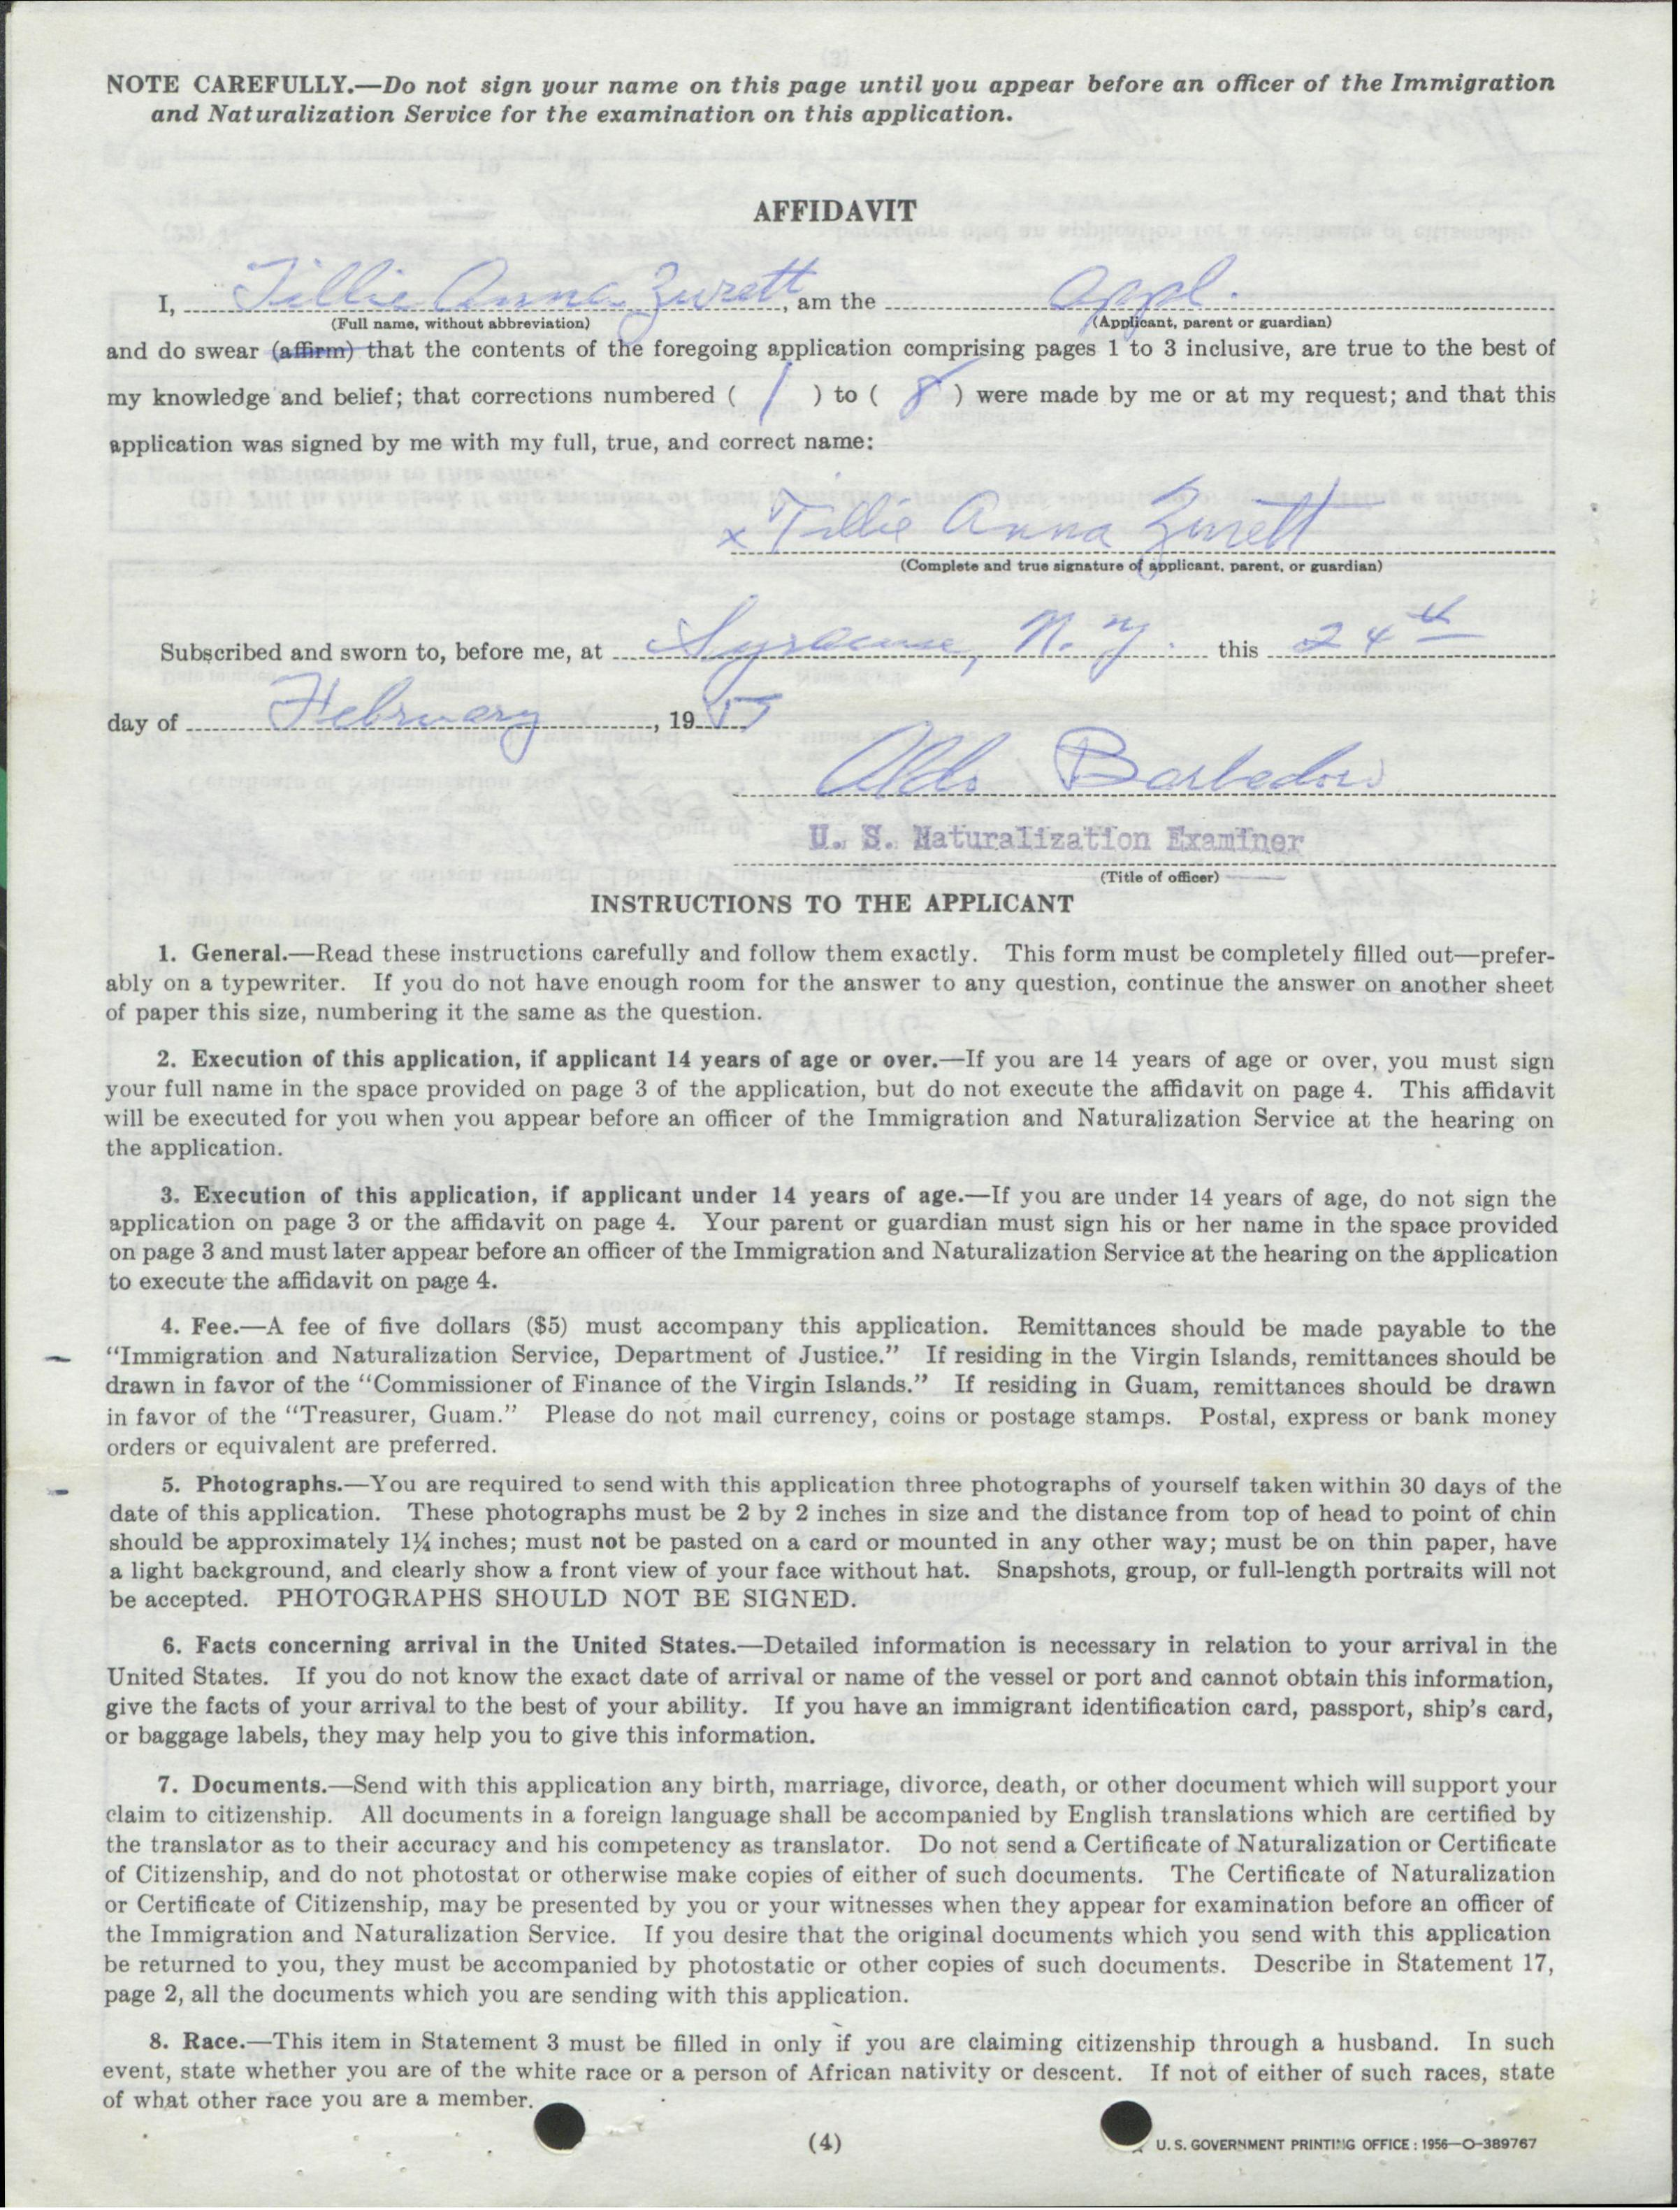 NOTE CAREFULLY.—Do not sign your name on this page until you appear before an officer of the Immigration
and Naturalization Service for the examination on this application.
AFFIDAVIT
I, Tillie Anna Zurett, am the appl.
(Full name, without abbreviation) (Applicant, parent or guardian)
and do swear (affirm) that the contents of the foregoing application comprising pages 1 to 3 inclusive, are true to the best of
my knowledge and belief; that corrections numbered ( 1 ) to ( 8 ) were made by me or at my request; and that this
application was signed by me with my full, true, and correct name:
x Tillie Anna Zurett
(Complete and true signature of applicant, parent, or guardian)
Subscribed and sworn to, before me, at Syracuse, N. Y. this 24th
day of February, 19
Aldo
U. S. Naturalization Examiner
(Title of officer)
INSTRUCTIONS TO THE APPLICANT
1. General.—Read these instructions carefully and follow them exactly. This form must be completely filled out—prefer-
ably on a typewriter. If you do not have enough room for the answer to any question, continue the answer on another sheet
of paper this size, numbering it the same as the question.
2. Execution of this application, if applicant 14 years of age or over.—If you are 14 years of age or over, you must sign
your full name in the space provided on page 3 of the application, but do not execute the affidavit on page 4. This affidavit
will be executed for you when you appear before an officer of the Immigration and Naturalization Service at the hearing on
the application.
3. Execution of this application, if applicant under 14 years of age.—If you are under 14 years of age, do not sign the
application on page 3 or the affidavit on page 4. Your parent or guardian must sign his or her name in the space provided
on page 3 and must later appear before an officer of the Immigration and Naturalization Service at the hearing on the application
to execute the affidavit on page 4.
4. Fee.—A fee of five dollars ($5) must accompany this application. Remittances should be made payable to the
“Immigration and Naturalization Service, Department of Justice.” If residing in the Virgin Islands, remittances should be
drawn in favor of the “Commissioner of Finance of the Virgin Islands.” If residing in Guam, remittances should be drawn
in favor of the “Treasurer, Guam.” Please do not mail currency, coins or postage stamps. Postal, express or bank money
orders or equivalent are preferred.
5. Photographs.—You are required to send with this application three photographs of yourself taken within 30 days of the
date of this application. These photographs must be 2 by 2 inches in size and the distance from top of head to point of chin
should be approximately 1¼ inches; must not be pasted on a card or mounted in any other way; must be on thin paper, have
a light background, and clearly show a front view of your face without hat. Snapshots, group, or full-length portraits will not
be accepted. PHOTOGRAPHS SHOULD NOT BE SIGNED.
6. Facts concerning arrival in the United States.—Detailed information is necessary in relation to your arrival in the
United States. If you do not know the exact date of arrival or name of the vessel or port and cannot obtain this information,
give the facts of your arrival to the best of your ability. If you have an immigrant identification card, passport, ship’s card,
or baggage labels, they may help you to give this information.
7. Documents.—Send with this application any birth, marriage, divorce, death, or other document which will support your
claim to citizenship. All documents in a foreign language shall be accompanied by English translations which are certified by
the translator as to their accuracy and his competency as translator. Do not send a Certificate of Naturalization or Certificate
of Citizenship, and do not photostat or otherwise make copies of either of such documents. The Certificate of Naturalization
or Certificate of Citizenship, may be presented by you or your witnesses when they appear for examination before an officer of
the Immigration and Naturalization Service. If you desire that the original documents which you send with this application
be returned to you, they must be accompanied by photostatic or other copies of such documents. Describe in Statement 17,
page 2, all the documents which you are sending with this application.
8. Race.—This item in Statement 3 must be filled in only if you are claiming citizenship through a husband. In such
event, state whether you are of the white race or a person of African nativity or descent. If not of either of such races, state
of what other race you are a member.
(4)
U. S. GOVERNMENT PRINTING OFFICE : 1956—O-389767